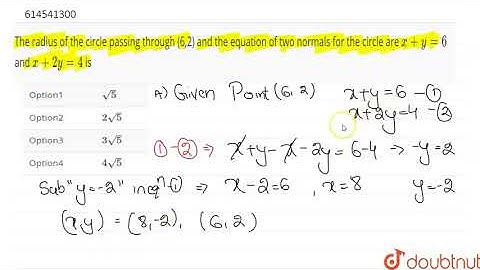 614541300
The radius of the circle passing through (6,2) and the equation of two normals for the circle are x + y = 6
and x + 2y = 4 is
Option1 √5
Option2 2√5
Option3 3√5
Option4 4√5
A) Given Point (6, 2) x+y=6 -①
x+2y=4 -②
①-② ⇒ x+y-x-2y = 6-4 ⇒ -y=2
Sub "y=-2" in eqⁿ-① ⇒ x-2=6 , x=8 y=-2
(x,y) = (8,-2), (6,2)
doubtnut